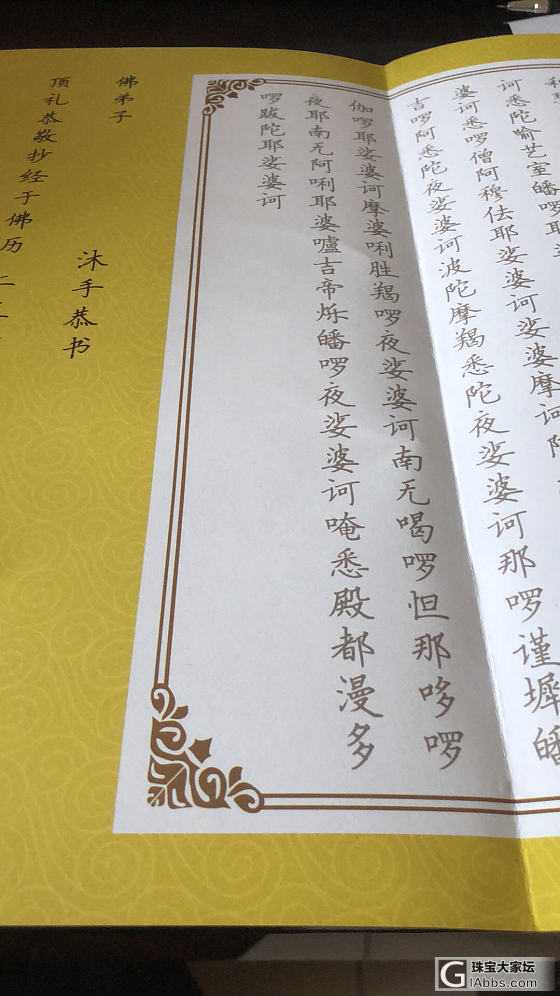 诃悉陀喻艺室皤啰耶
婆诃悉啰僧阿穆佉耶娑婆诃娑婆摩诃阿
吉啰阿悉陀夜娑婆诃波陀摩羯悉陀夜娑婆诃那啰谨墀皤
伽啰耶娑婆诃摩婆唎胜羯啰夜娑婆诃南无喝啰怛那哆啰
夜耶南无阿唎耶婆嚧吉帝烁皤啰夜娑婆诃唵悉殿都漫多
啰跋陀耶娑婆诃
佛弟子
沐手恭书
顶礼恭敬抄经于佛历二
珠宝大家坛
iAbbs.com